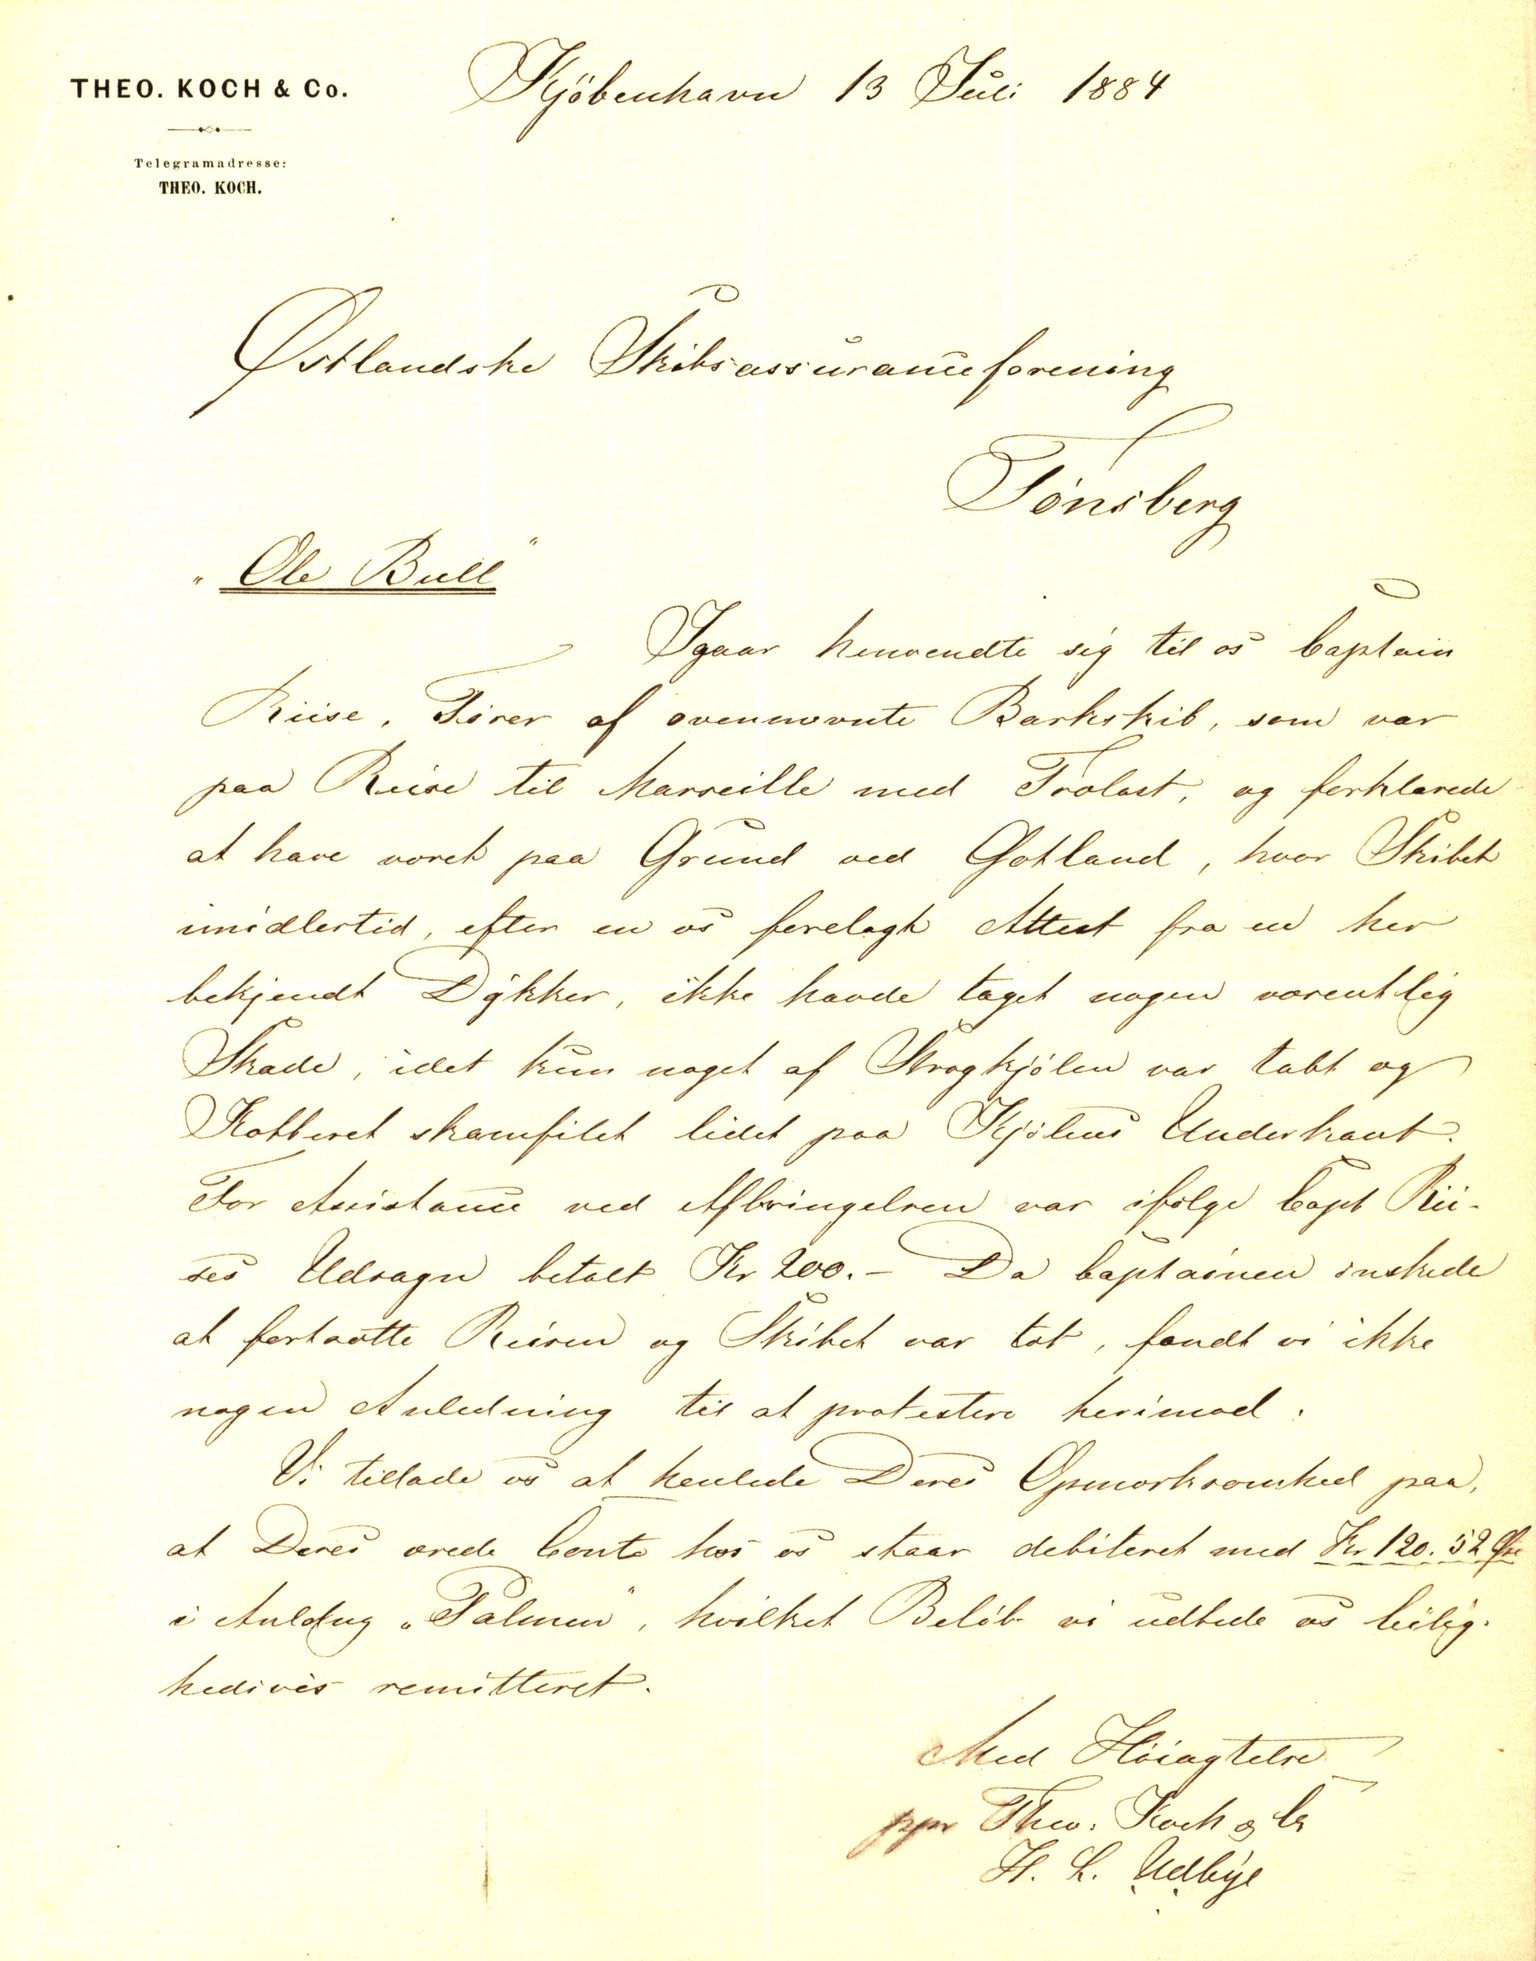 THEO. KOCH & Co.
Kjöbenhavn 13 Juli 1884
Telegramadresse:
THEO. KOCH.
Østlandske Skibsassuranceforening
Tønsberg
"Ole Bull"
Igaar henvendte sig til os Captain
Riise, Fører af ovennævnte Barkskib, som var
paa Reise til Marseille med Trælast, og forklarede
at have været paa Grund ved Gotland, hvor Skibet
imidlertid, efter en os forelagt Attest fra en her
bekjendt Dykker, ikke havde taget nogen væsentlig
Skade, idet kun noget af Straagkjølen var tabt og
Kobberet skamfilet lidet paa Kjølens Underkant.
For Assistance ved Afbringelsen var ifølge Capt Rii-
ses Udsagn betalt Kr 200.- Da Captainen ønskede
at fortsætte Reisen og Skibet var tæt, fandt vi ikke
nogen Anledning til at protestere herimod.
Vi tillade os at henlede Deres Opmærksomhed paa,
at Deres ærede Conto hos os staar debiteret med Kr 120.52 Øre
i Anldng "Palmen", hvilket Beløb vi udbede os leilig-
hedsvis remitteret.
Med Høiagtelse
ppr Theo. Koch & Co
H. L. Udbye